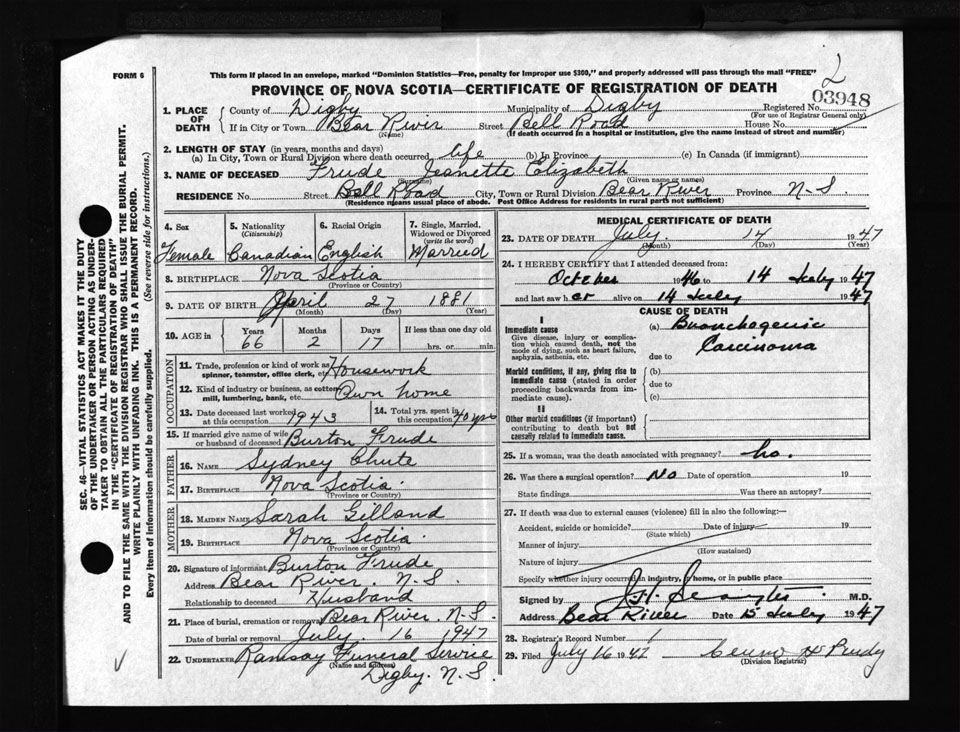 FORM 6
This form if placed in an envelope, marked "Dominion Statistics—Free, penalty for improper use $300," and properly addressed will pass through the mail "FREE"
2
PROVINCE OF NOVA SCOTIA—CERTIFICATE OF REGISTRATION OF DEATH
03948
1. PLACE OF DEATH
County of Digby Municipality of Digby Registered No.
(For use of Registrar General only)
If in City or Town Bear River Street Bell Road House No.
(Name) (If death occurred in a hospital or institution, give the name instead of street and number)
2. LENGTH OF STAY (in years, months and days)
(a) In City, Town or Rural Division where death occurred life (b) In Province (c) In Canada (if immigrant)
3. NAME OF DECEASED Frude Jeanette Elizabeth
(Surname) (Given name or names)
RESIDENCE No. Street Bell Road City, Town or Rural Division Bear River Province N.S.
(Residence means usual place of abode. Post Office Address for residents in rural parts not sufficient)
4. Sex 5. Nationality (Citizenship) 6. Racial Origin 7. Single, Married, Widowed or Divorced (write the word)
Female Canadian English Married
8. BIRTHPLACE Nova Scotia
(Province or Country)
9. DATE OF BIRTH April 27 1881
(Month) (Day) (Year)
10. AGE in Years Months Days If less than one day old
66 2 17 hrs. or min.
OCCUPATION
11. Trade, profession or kind of work as spinner, teamster, office clerk, etc. Housework
12. Kind of industry or business, as cotton mill, lumbering, bank, etc. Own home
13. Date deceased last worked at this occupation 1943 14. Total yrs. spent in this occupation 40 yrs
15. If married give name of wife or husband of deceased Burton Frude
FATHER
16. NAME Sydney Chute
17. BIRTHPLACE Nova Scotia.
(Province or Country)
MOTHER
18. MAIDEN NAME Sarah Gilland
19. BIRTHPLACE Nova Scotia.
(Province or Country)
20. Signature of informant Burton Frude
Address Bear River. N.S.
Relationship to deceased Husband
21. Place of burial, cremation or removal Bear River. N.S.
Date of burial or removal July. 16 1947
22. UNDERTAKER Ramsay Funeral Service
(Name and address)
Digby. N.S.
MEDICAL CERTIFICATE OF DEATH
23. DATE OF DEATH July. 14 1947
(Month) (Day) (Year)
24. I HEREBY CERTIFY that I attended deceased from:
October 1946 to 14 July 1947
and last saw her alive on 14 July 1947
CAUSE OF DEATH
I
Immediate cause (a) Bronchogenic
Give disease, injury or complication which caused death, not the mode of dying, such as heart failure, asphyxia, asthenia, etc.
Carcinoma
due to
Morbid conditions, if any, giving rise to immediate cause (stated in order proceeding backwards from immediate cause).
(b)
due to
(c)
II
Other morbid conditions (if important) contributing to death but not causally related to immediate cause.
25. If a woman, was the death associated with pregnancy? no.
26. Was there a surgical operation? No Date of operation 19
State findings Was there an autopsy?
27. If death was due to external causes (violence) fill in also the following:
Accident, suicide or homicide? Date of injury 19
(State which)
Manner of injury
(How sustained)
Nature of injury
Specify whether injury occurred in industry, in home, or in public place
Signed by M.D.
Address Bear River Date 15 July 1947
28. Registrar's Record Number 1
29. Filed July 16 1947 Purdy
(Division Registrar)
SEC. 46—VITAL STATISTICS ACT MAKES IT THE DUTY
OF THE UNDERTAKER OR PERSON ACTING AS UNDERTAKER TO OBTAIN ALL THE PARTICULARS REQUIRED
IN THE "CERTIFICATE OF REGISTRATION OF DEATH"
AND TO FILE THE SAME WITH THE DIVISION REGISTRAR WHO SHALL ISSUE THE BURIAL PERMIT.
WRITE PLAINLY WITH UNFADING INK. THIS IS A PERMANENT RECORD.
Every item of information should be carefully supplied. (See reverse side for instructions.)